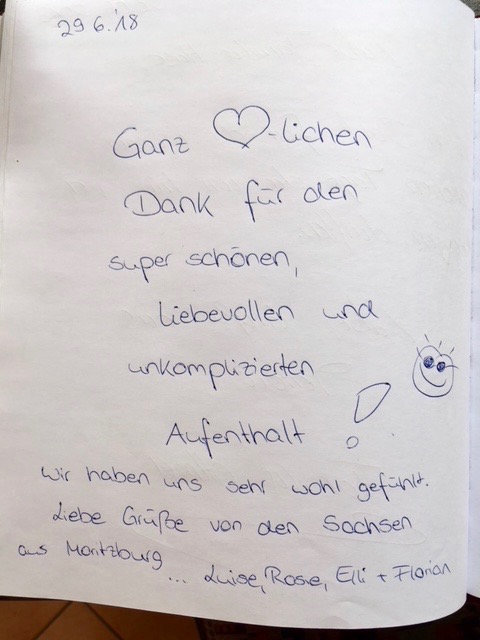 29 6.'18
Ganz ♡-lichen
Dank für den
super schönen,
liebevollen und
unkomplizierten
Aufenthalt !
Wir haben uns sehr wohl gefühlt.
Liebe Grüße von den Sachsen
aus Moritzburg
... Luise, Rosie, Elli + Florian